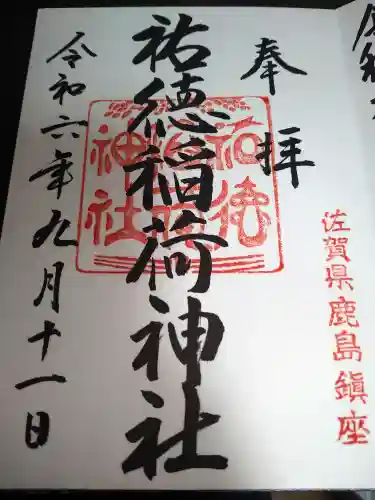 奉拝
佐賀県鹿島鎮座
祐徳稲荷神社
祐徳
稲荷
神社
令和六年九月十一日